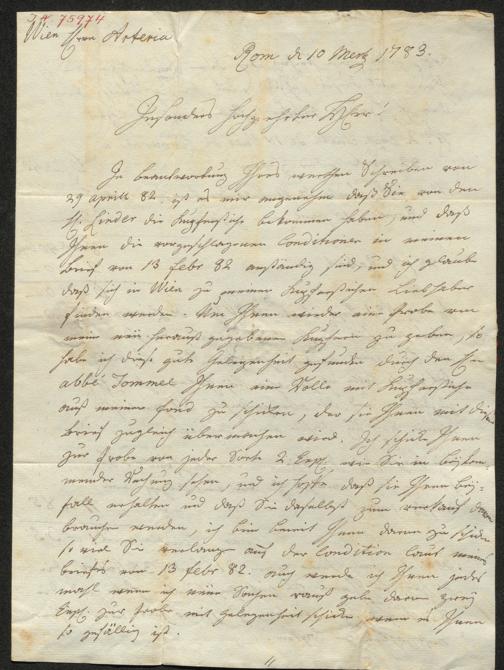 N 75974
Wien Herrn Arteria
Rom d 10 Mertz 1783.
Insonders Hochgeehrter Herr!
In beantwortung Ihres werthen Schreiben von
29 aprill 82 ist es mir angenehm daß Sie von den
H: Linder die Kupferstiche bekommen haben, und daß
Ihnen die vorgeschlagenen Conditionen in meinen
brief von 13 febr 82 anständig sind, und ich glaube
daß sich in Wien zu meinen Kupferstichen Liebhaber
finden werden. Um Ihnen wieder eine Probe von
meine neü herauß gegebenen Kupfern zu geben, so
habe ich diese gute Gelegenheit gefunden durch den Hn
abbé Tommel Ihnen eine Rolle mit Kupferstiche
auß meinen fond zu schicken, der sie Ihnen mit diesen
brief zugleich übermachen wird. Ich schicke Ihnen
zur Probe von jeder Sorte 2 Exp. wie Sie in beykom
mender Rechnung sehen, und ich hoffe daß sie Ihren bey
fall erhalten und daß Sie daselbst zum verkauf
brauchen werden, ich bin bereit Ihnen davon zu schicken
so viel Sie verlangen auf der Condition laut meines
briefes von 13 febr 82. auch werde ich Ihnen jedes
mahl wenn ich neüe Sachen rauß gebe davon zwey
Exp. zur probe mit gelegenheit schicken wenn es Ihnen
so gefällig ist.